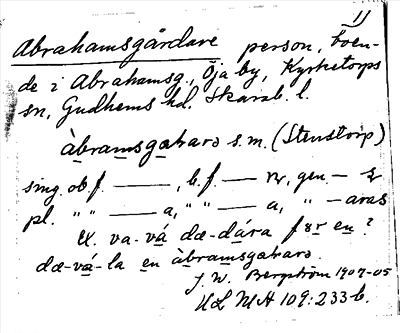 11
Abrahamsgårdare person, boen-
de i Abrahamsg., Öja by, Kyrketorps
sn, Gudhems hd. Skarab. l.
àbramsgaharo s. m. (Stenstorp)
sing. ob. f. —— , b. f. —— n, gen. —
pl. " " —— a, " " —— a, " — aras
Ex. va-vá dæ-dára for en ?
dæ-vá-la en àbramsgaharo.
J. W. Bergström 1907-05
ULMA 109:233 b.